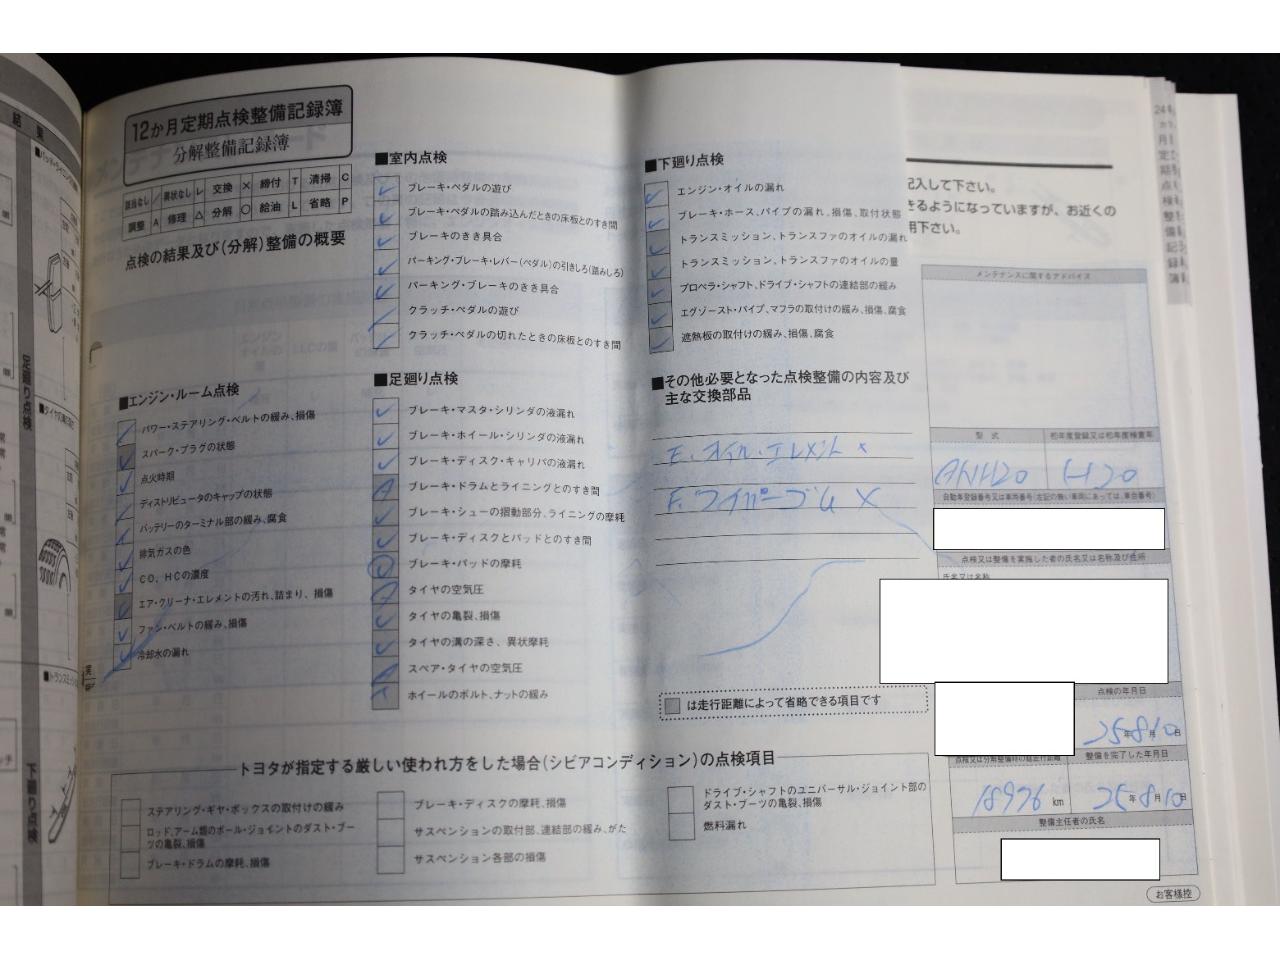 結果
足廻り点検
下廻り点検
12か月定期点検整備記録簿
分解整備記録簿
該当なし / 異状なし レ 交換 × 締付 T 清掃 C
調整 A 修理 △ 分解 ○ 給油 L 省略 P
点検の結果及び(分解)整備の概要
■エンジン・ルーム点検
パワー・ステアリング・ベルトの緩み、損傷
スパーク・プラグの状態
点火時期
ディストリビュータのキャップの状態
バッテリーのターミナル部の緩み、腐食
排気ガスの色
CO、HCの濃度
エア・クリーナ・エレメントの汚れ、詰まり、損傷
ファン・ベルトの緩み、損傷
冷却水の漏れ
■室内点検
ブレーキ・ペダルの遊び
ブレーキ・ペダルの踏み込んだときの床板とのすき間
ブレーキのきき具合
パーキング・ブレーキ・レバー(ペダル)の引きしろ(踏みしろ)
パーキング・ブレーキのきき具合
クラッチ・ペダルの遊び
クラッチ・ペダルの切れたときの床板とのすき間
■足廻り点検
ブレーキ・マスタ・シリンダの液漏れ
ブレーキ・ホイール・シリンダの液漏れ
ブレーキ・ディスク・キャリパの液漏れ
ブレーキ・ドラムとライニングとのすき間
ブレーキ・シューの摺動部分、ライニングの摩耗
ブレーキ・ディスクとパッドとのすき間
ブレーキ・パッドの摩耗
タイヤの空気圧
タイヤの亀裂、損傷
タイヤの溝の深さ、異状摩耗
スペア・タイヤの空気圧
ホイールのボルト、ナットの緩み
■下廻り点検
エンジン・オイルの漏れ
ブレーキ・ホース、パイプの漏れ、損傷、取付状態
トランスミッション、トランスファのオイルの漏れ
トランスミッション、トランスファのオイルの量
プロペラ・シャフト、ドライブ・シャフトの連結部の緩み
エグゾースト・パイプ、マフラの取付けの緩み、損傷、腐食
遮熱板の取付けの緩み、損傷、腐食
■その他必要となった点検整備の内容及び
主な交換部品
E.オイル・エレメント ×
F.ワイパーゴム ×
は走行距離によって省略できる項目です
トヨタが指定する厳しい使われ方をした場合(シビアコンディション)の点検項目
ステアリング・ギヤ・ボックスの取付けの緩み
ロッド、アーム類のボール・ジョイントのダスト・ブー
ツの亀裂、損傷
ブレーキ・ドラムの摩耗、損傷
ブレーキ・ディスクの摩耗、損傷
サスペンションの取付部、連結部の緩み、がた
サスペンション各部の損傷
ドライブ・シャフトのユニバーサル・ジョイント部の
ダスト・ブーツの亀裂、損傷
燃料漏れ
記入して下さい。
きるようになっていますが、お近くの
用下さい。
メンテナンスに関するアドバイス
型式 初年度登録又は初年度検査年
ANH20 H20
自動車登録番号又は車両番号(左記の無い車両にあっては、車台番号)
点検又は整備を実施した者の氏名又は名称及び住所
氏名又は名称
点検の年月日
25年8月10日
点検又は分解整備時の総走行距離 整備を完了した年月日
18976 km 25年8月10日
整備主任者の氏名
お客様控